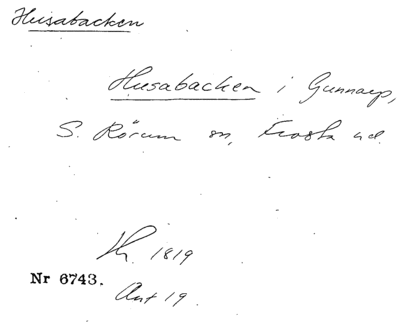 Husabacken
Husabacken i Gunnarp,
S. Rörum sn, Frosta hd.
1819
Nr 6743.
Ant 19.